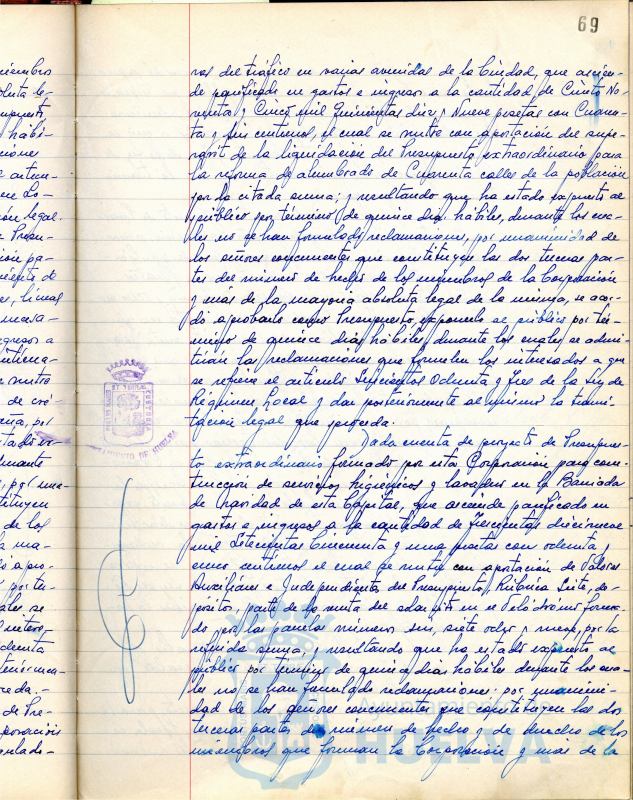 69
ras del tráfico en varias avenidas de la Ciudad, que ascien-
de panificado en gastos e ingresos a la cantidad de Ciento No-
venta y Cinco mil Quinientas diez y Nueve pesetas con Cuaren-
ta y seis centimos, el cual se nutre con aportación del supe-
ravit de la liquidación del Presupuesto extraordinario para
la reforma de alumbrado de Cuarenta calles de la población
por la citada suma; y resultando que ha estado expuesto al
público por término de quince dias hábiles, durante los cua-
les no se han formulado reclamaciones, por unanimidad de
los señores concurrentes que constituyen las dos terceras par-
tes del número de hecho de los miembros de la Corporación
y más de la mayoria absoluta legal de la misma, se acor-
dó aprobarlo como Presupuesto, exponerlo al público por tér-
mino de quince dias hábiles durante los cuales se admi-
tirán las reclamaciones que formulen los interesados a que
se refiere el articulo Seiscientos Ochenta y Tres de la Ley de
Régimen Local y dar posteriormente al mismo la trami-
tación legal que proceda.
Dada cuenta de proyecto de Presupues-
to extraordinario formado por esta Corporación para cons-
trucción de servicios higiénicos y lavaderos en la Barriada
de Navidad de esta Capital, que asciende panificado en
gastos e ingresos a la cantidad de Trescientas diecinueve
mil Setecientas Cincuenta y una pesetas con ochenta y
cinco centimos el cual se nutre con aportación de Valores
Auxiliares e Independientes del Presupuesto, Rúbrica Siete, de-
positos, parte de la venta del solar sito en el Velódromo forma-
do por las parcelas números seis, siete ocho y nueve, por la
referida suma; y resultando que ha estado expuesto al
público por término de quince dias hábiles durante los cua-
les no se han formulado reclamaciones: por unanimi-
dad de los señores concurrentes que constituyen las dos
terceras partes del número de hecho y de derecho de los
miembros que forman la Corporación y más de la
AYUNTAMIENTO DE HUELVA
HUELVA